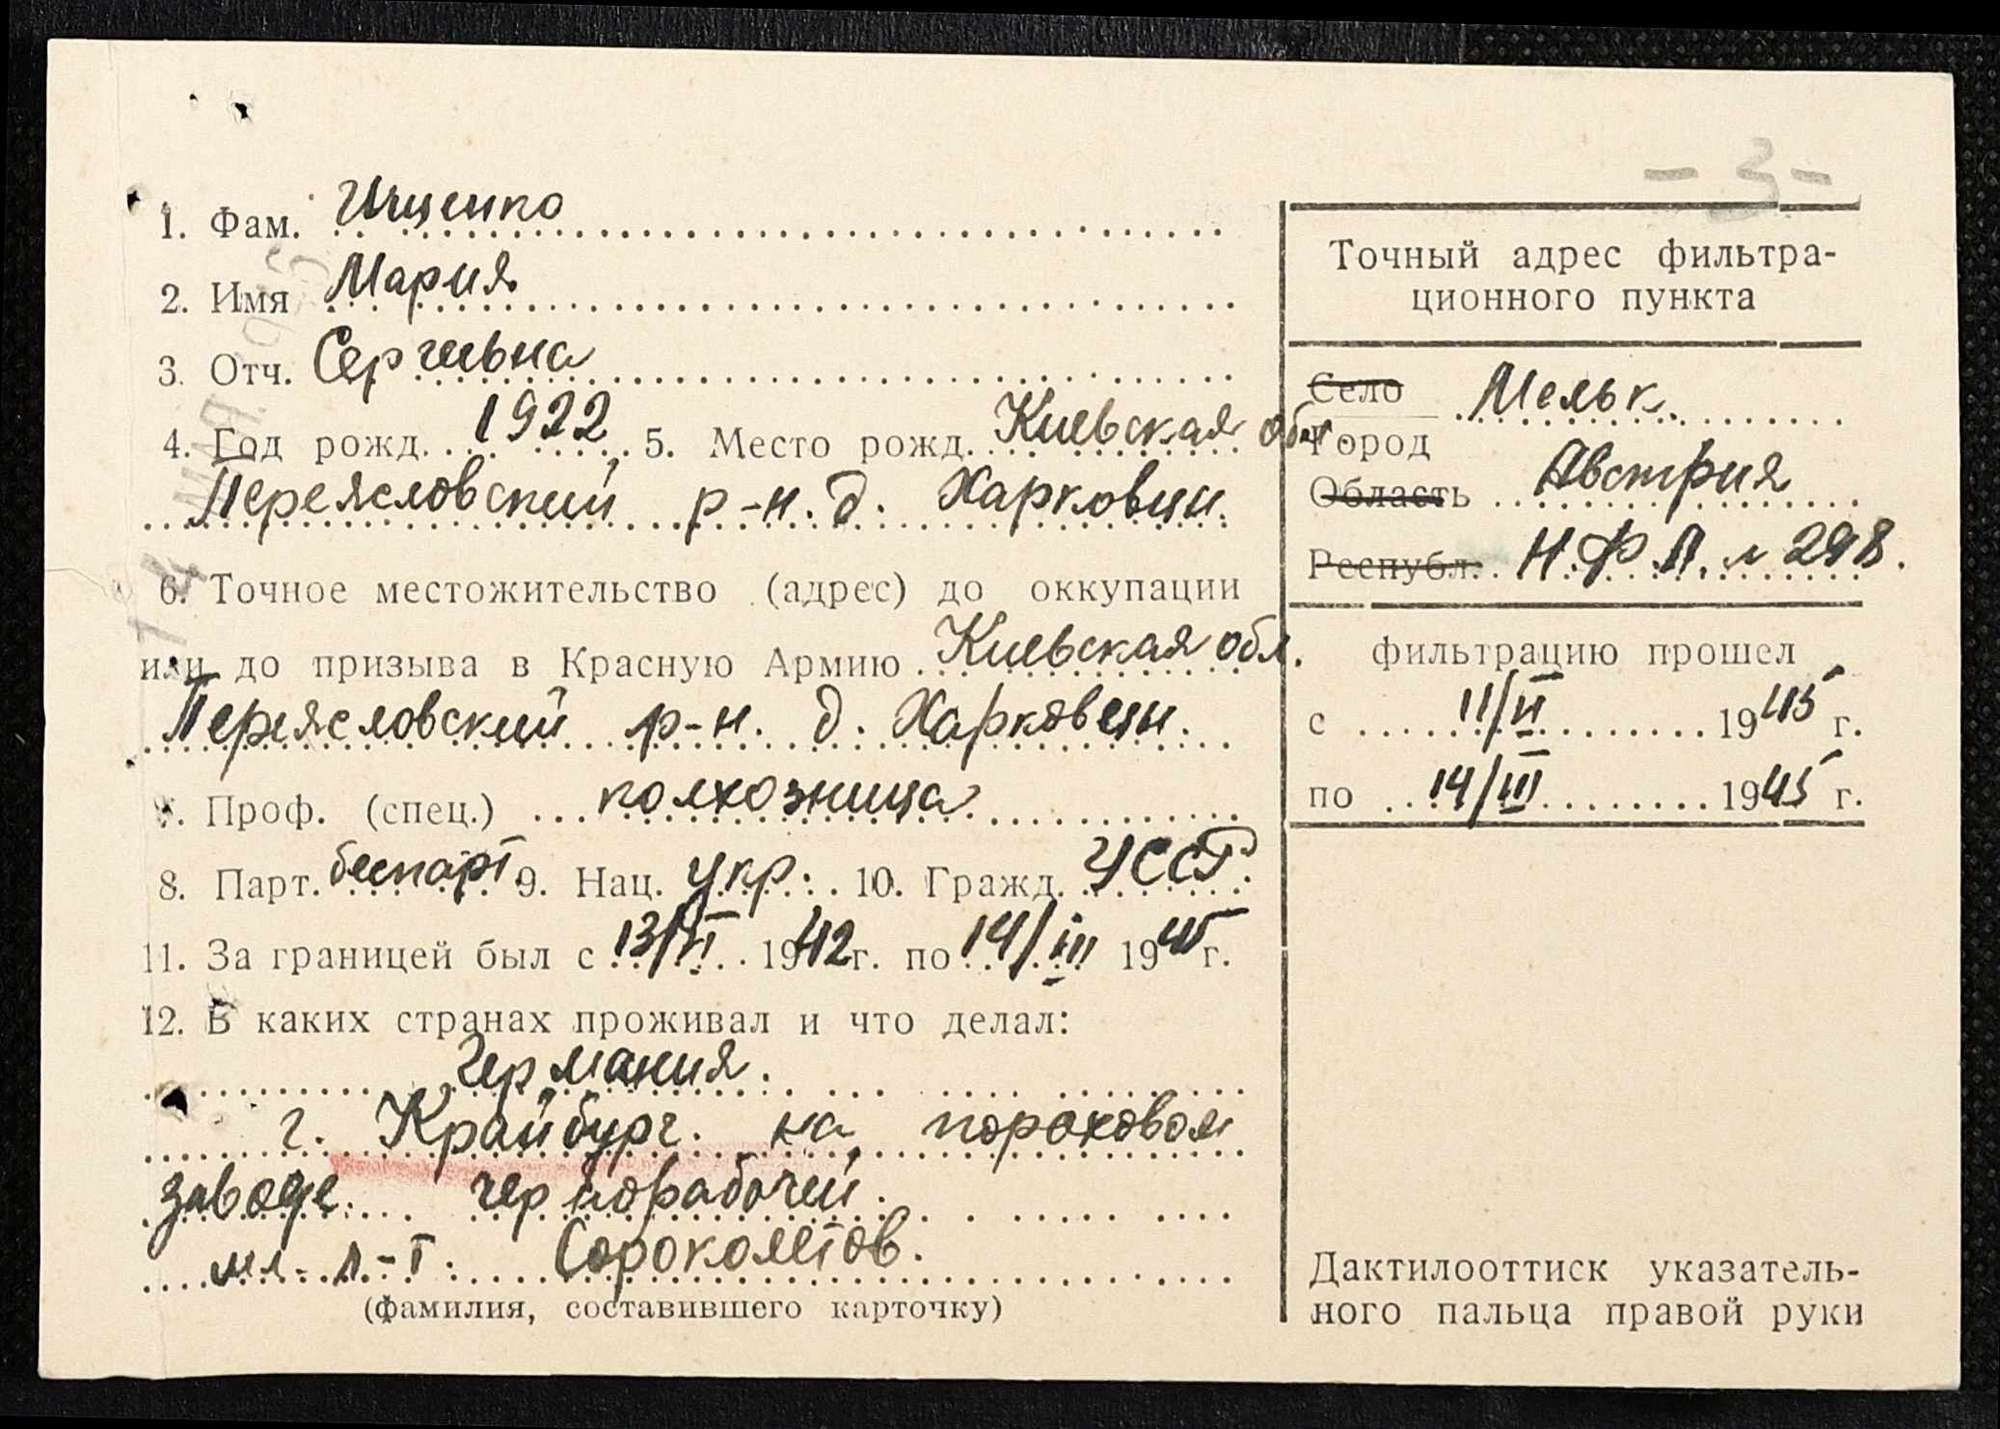 - 3 -
1. Фам. Ищенко
2. Имя Мария
3. Отч. Сергеевна
4. Год рожд. 1922 5. Место рожд. Киевская обл.
Переясловский р-н. д. Харковци.
6. Точное местожительство (адрес) до оккупации
или до призыва в Красную Армию Киевская обл.
Переясловский р-н. д. Харковци.
7. Проф. (спец.) колхозница
8. Парт. беспарт 9. Нац. укр. 10. Гражд. УССР
11. За границей был с 13/VI 1942 г. по 14/III 1945 г.
12. В каких странах проживал и что делал:
Германия.
г. Крайбург. на пороховом
заводе чернорабочей.
мл. л-т. Сороколетов.
(фамилия, составившего карточку)
Точный адрес фильтра-
ционного пункта
Село Мельк.
Город
Область Австрия
Республ. Н.Ф.П. № 298.
фильтрацию прошел
с 11/VI 1945 г.
по 14/III 1945 г.
Дактилооттиск указатель-
ного пальца правой руки